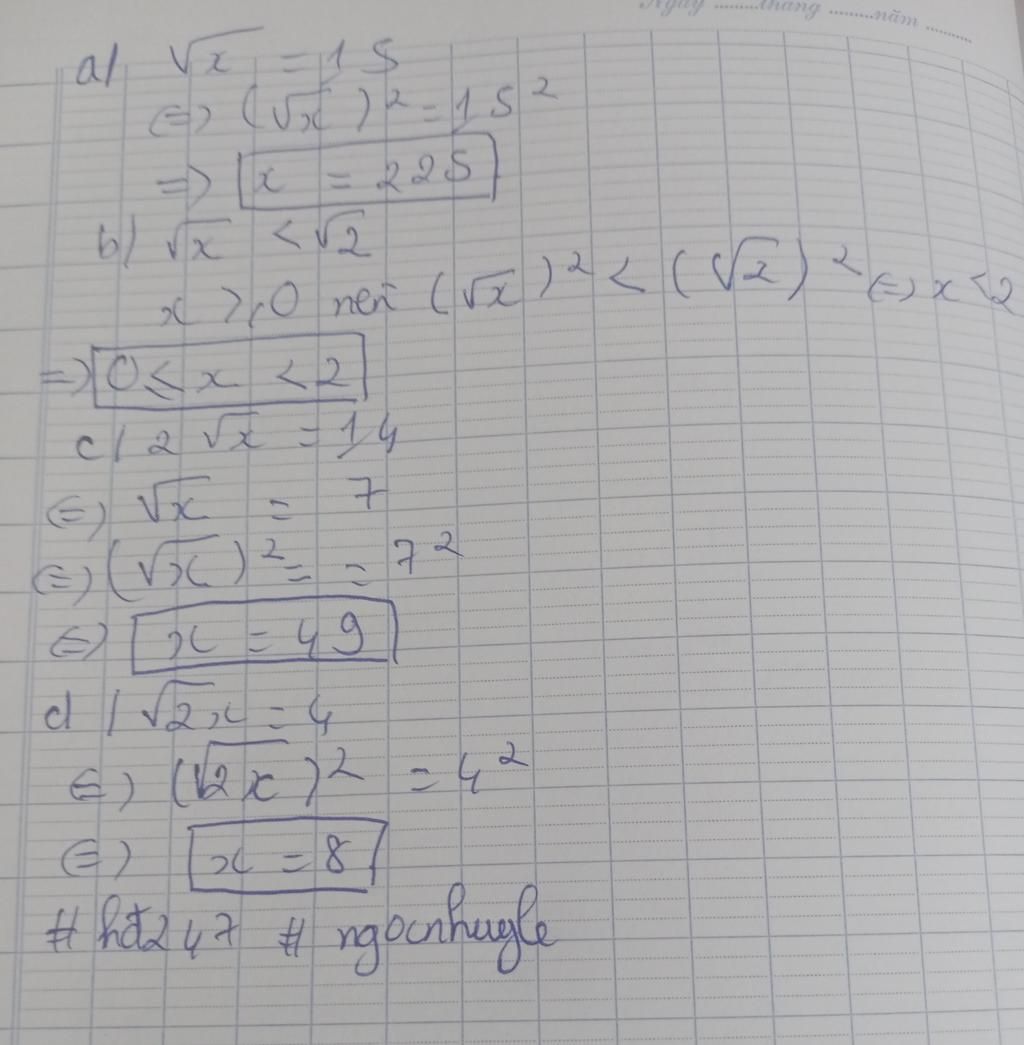 Ngày ......... tháng ......... năm .........
a/ √x = 15
⇔ (√x)² = 15²
=> x = 225
b/ √x < √2
x ≥ 0 nên (√x)² < (√2)² ⇔ x < 2
=> 0 ≤ x < 2
c/ 2√x = 14
⇔ √x = 7
⇔ (√x)² = = 7²
⇔ x = 49
d/ √2x = 4
⇔ (√2x)² = 4²
⇔ x = 8
# hđ247 # ngocnhugle